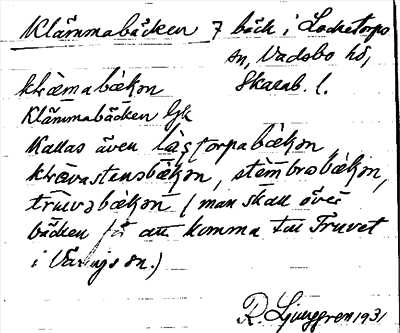 Klämmabäcken 7 bäck i Locketorps
sn, Vadsbo hd,
Skarab. l.
klæmabækən
Klämmabäcken Gk
Kallas även lagtorpabækən
klevastensbækən, stembrobækən,
truvəbækən (man skall över
bäcken för att komma till Truvet
i Värings sn.)
R. Ljunggren 1931